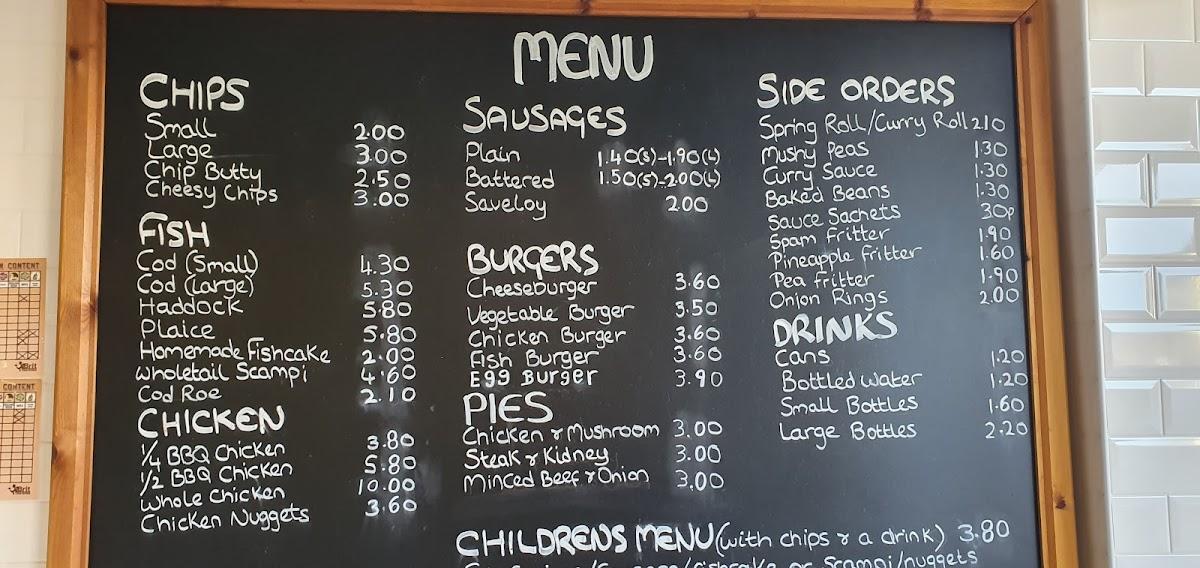 MENU
CHIPS
Small 2.00
Large 3.00
Chip Butty 2.50
Cheesy Chips 3.00
FISH
Cod (Small) 4.30
Cod (Large) 5.30
Haddock 5.80
Plaice 5.80
Homemade Fishcake 2.00
Wholetail Scampi 4.60
Cod Roe 2.10
CHICKEN
1/4 BBQ Chicken 3.80
1/2 BBQ Chicken 5.80
Whole Chicken 10.00
Chicken Nuggets 3.60
SAUSAGES
Plain 1.40(s)-1.90(L)
Battered 1.50(s)-2.00(L)
Saveloy 2.00
BURGERS
Cheeseburger 3.60
Vegetable Burger 3.50
Chicken Burger 3.60
Fish Burger 3.60
Egg Burger 3.90
PIES
Chicken & Mushroom 3.00
Steak & Kidney 3.00
Minced Beef & Onion 3.00
SIDE ORDERS
Spring Roll/Curry Roll 2.10
Mushy Peas 1.30
Curry Sauce 1.30
Baked Beans 1.30
Sauce Sachets 30p
Spam Fritter 1.90
Pineapple Fritter 1.60
Pea Fritter 1.90
Onion Rings 2.00
DRINKS
Cans 1.20
Bottled Water 1.20
Small Bottles 1.60
Large Bottles 2.20
CHILDRENS MENU (with chips & a drink) 3.80
fishcake or scampi/nuggets
CONTENT
CONTENT